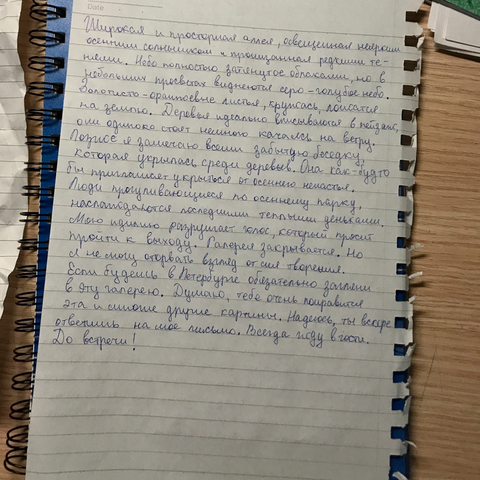 Date
Широкая и просторная аллея, освещенная неярким
осенним солнышком и пронизанная редкими те-
нями. Небо полностью затянутое облаками, но в
небольших просветах виднеется серо-голубое небо.
Золотисто-оранжевые листья, кружась, ложатся
на землю. Деревья идеально вписываются в пейзаж,
они одиноко стоят немного качаясь на ветру.
Позже я замечаю всеми забытую беседку,
которая укрылась среди деревьев. Она как-будто
бы приглашает укрыться от осеннего ненастья.
Люди прогуливающиеся по осеннему парку,
наслаждаются последними теплыми деньками.
Мою идиллию разрушает голос, который просит
пройти к выходу. Галерея закрывается. Но
я не могу оторвать взгляд от сия творения.
Если будешь в Петербурге обязательно загляни
в эту галерею. Думаю, тебе очень понравится
эта и многие другие картины. Надеюсь, ты вскоре
ответишь на мое письмо. Всегда жду в гости.
До встречи!